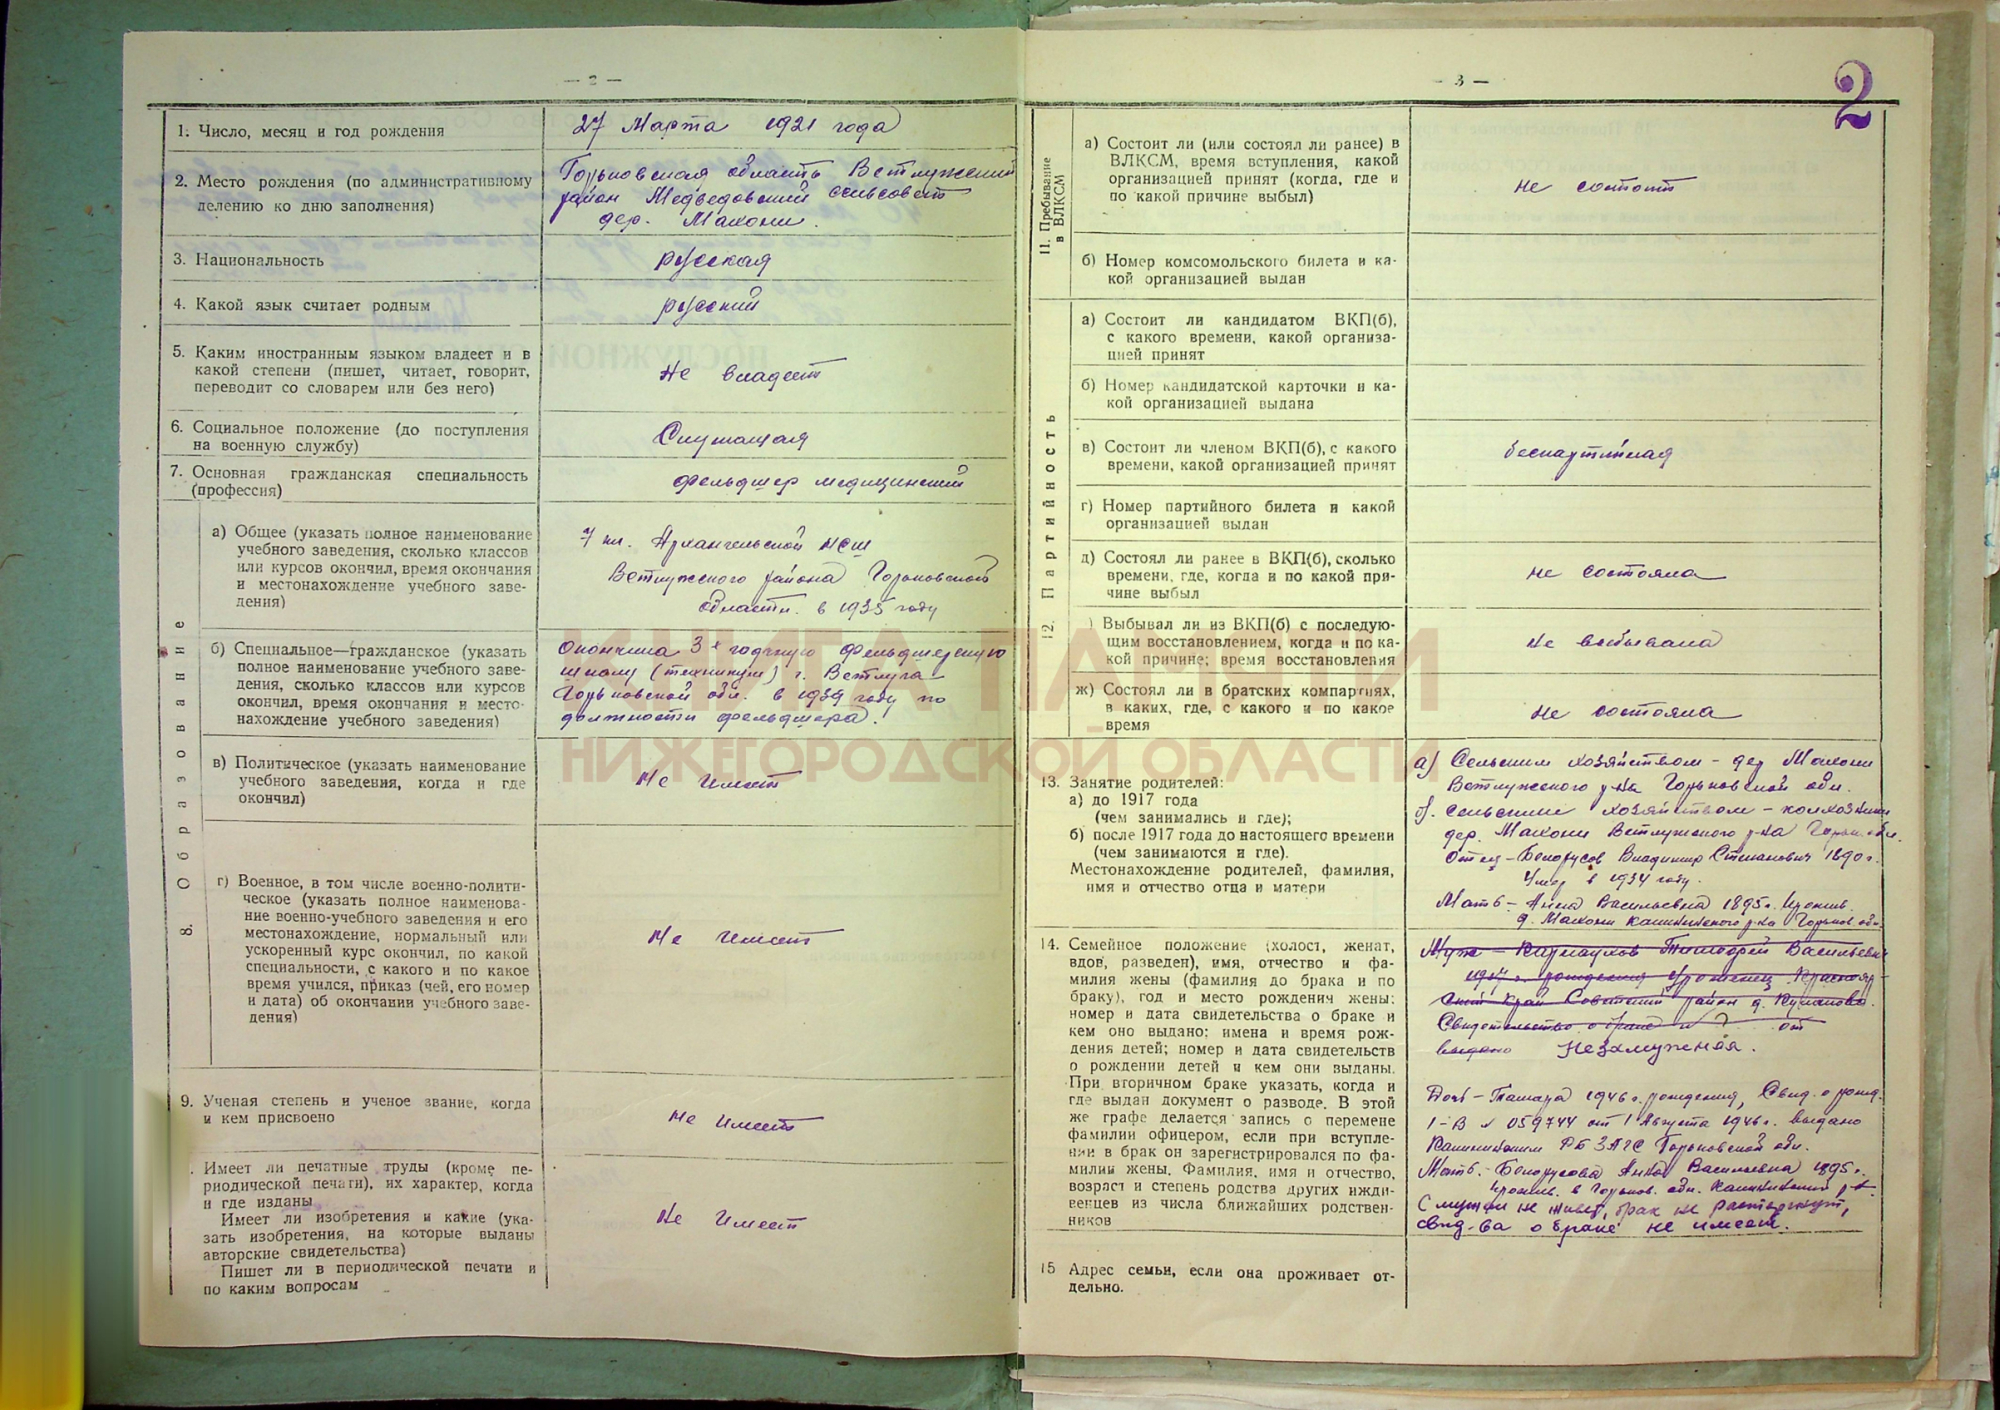 — 2 —
1. Число, месяц и год рождения
27 Марта 1921 года
2. Место рождения (по административному
делению ко дню заполнения)
Горьковская область Ветлужский
район Медведовский сельсовет
дер. Махони.
3. Национальность
русская
4. Какой язык считает родным
русский
5. Каким иностранным языком владеет и в
какой степени (пишет, читает, говорит,
переводит со словарем или без него)
Не владеет
6. Социальное положение (до поступления
на военную службу)
Служащая
7. Основная гражданская специальность
(профессия)
фельдшер медицинский
8. Образование
а) Общее (указать полное наименование
учебного заведения, сколько классов
или курсов окончил, время окончания
и местонахождение учебного заве-
дения)
7 кл. Архангельской НСШ
Ветлужского района Горьковской
области. в 1935 году
б) Специальное—гражданское (указать
полное наименование учебного заве-
дения, сколько классов или курсов
окончил, время окончания и место-
нахождение учебного заведения)
Окончила 3х годичную фельдшерскую
школу (техникум) г. Ветлуга
Горьковской обл. в 1939 году по
должности фельдшера.
в) Политическое (указать наименование
учебного заведения, когда и где
окончил)
Не имеет
г) Военное, в том числе военно-полити-
ческое (указать полное наименова-
ние военно-учебного заведения и его
местонахождение, нормальный или
ускоренный курс окончил, по какой
специальности, с какого и по какое
время учился, приказ (чей, его номер
и дата) об окончании учебного заве-
дения)
Не имеет
9. Ученая степень и ученое звание, когда
и кем присвоено
Не имеет
. Имеет ли печатные труды (кроме пе-
риодической печати), их характер, когда
и где изданы
Имеет ли изобретения и какие (ука-
зать изобретения, на которые выданы
авторские свидетельства)
Пишет ли в периодической печати и
по каким вопросам
Не имеет
3 —
2
11. Пребывание
в ВЛКСМ
а) Состоит ли (или состоял ли ранее) в
ВЛКСМ, время вступления, какой
организацией принят (когда, где и
по какой причине выбыл)
не состоит
б) Номер комсомольского билета и ка-
кой организацией выдан
12. Партийность
а) Состоит ли кандидатом ВКП(б),
с какого времени, какой организа-
цией принят
б) Номер кандидатской карточки и ка-
кой организацией выдана
в) Состоит ли членом ВКП(б), с какого
времени, какой организацией принят
беспартийная
г) Номер партийного билета и какой
организацией выдан
д) Состоял ли ранее в ВКП(б), сколько
времени, где, когда и по какой при-
чине выбыл
не состояла
) Выбывал ли из ВКП(б) с последую-
щим восстановлением, когда и по ка-
кой причине; время восстановления
не выбывала
ж) Состоял ли в братских компартиях,
в каких, где, с какого и по какое
время
Не состояла
13. Занятие родителей:
а) до 1917 года
(чем занимались и где);
б) после 1917 года до настоящего времени
(чем занимаются и где).
Местонахождение родителей, фамилия,
имя и отчество отца и матери
а) Сельским хозяйством - дер Махони
Ветлужского р-на Горьковской обл.
б). сельским хозяйством - колхозники
дер. Махони Ветлужского р-на Горьк обл.
Отец - Белорусов Владимир Степанович 1890 г.
Умер в 1934 году.
Мать - Анна Васильевна 1895 г. Прожив.
д. Махони Калининского р-на Горьков обл.
14. Семейное положение (холост, женат,
вдов, разведен), имя, отчество и фа-
милия жены (фамилия до брака и по
браку), год и место рождения жены;
номер и дата свидетельства о браке и
кем оно выдано; имена и время рож-
дения детей; номер и дата свидетельств
о рождении детей и кем они выданы.
При вторичном браке указать, когда и
где выдан документ о разводе. В этой
же графе делается запись о перемене
фамилии офицером, если при вступле-
нии в брак он зарегистрировался по фа-
милии жены. Фамилия, имя и отчество,
возраст и степень родства других ижди-
венцев из числа ближайших родствен-
ников
Муж - Карнаухов Тимофей Васильевич
1917 г. рождения Уроженец Краснояр-
ский край Советский район д. Куликова.
Свидетельство о браке № ? от
выдано Незамужная.
Дочь - Тамара 1946 г. рождения, Свид. о рожд.
1-В № 059744 от 1 Августа 1946 г. выдано
Калининским РБ ЗАГС Горьковской обл.
Мать. - Белорусова Анна Васильевна 1895 г.
прожив. в Горьков. обл. Калининский р-н.
С мужем не живет, брак не расторгнут,
свид-ва о браке не имеет.
15 Адрес семьи, если она проживает от-
дельно.
КНИГА ПАМЯТИ
НИЖЕГОРОДСКОЙ ОБЛАСТИ